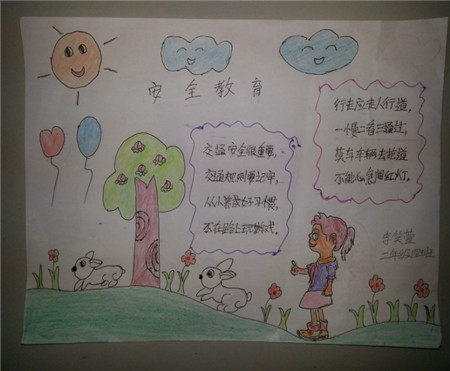 安全教育
交通安全很重要,
交通规则要记牢,
从小养成好习惯,
不在路上玩游戏.
行走应走人行道,
一慢二看三通过,
莫与车辆去抢道
不能心急闯红灯.
二年级